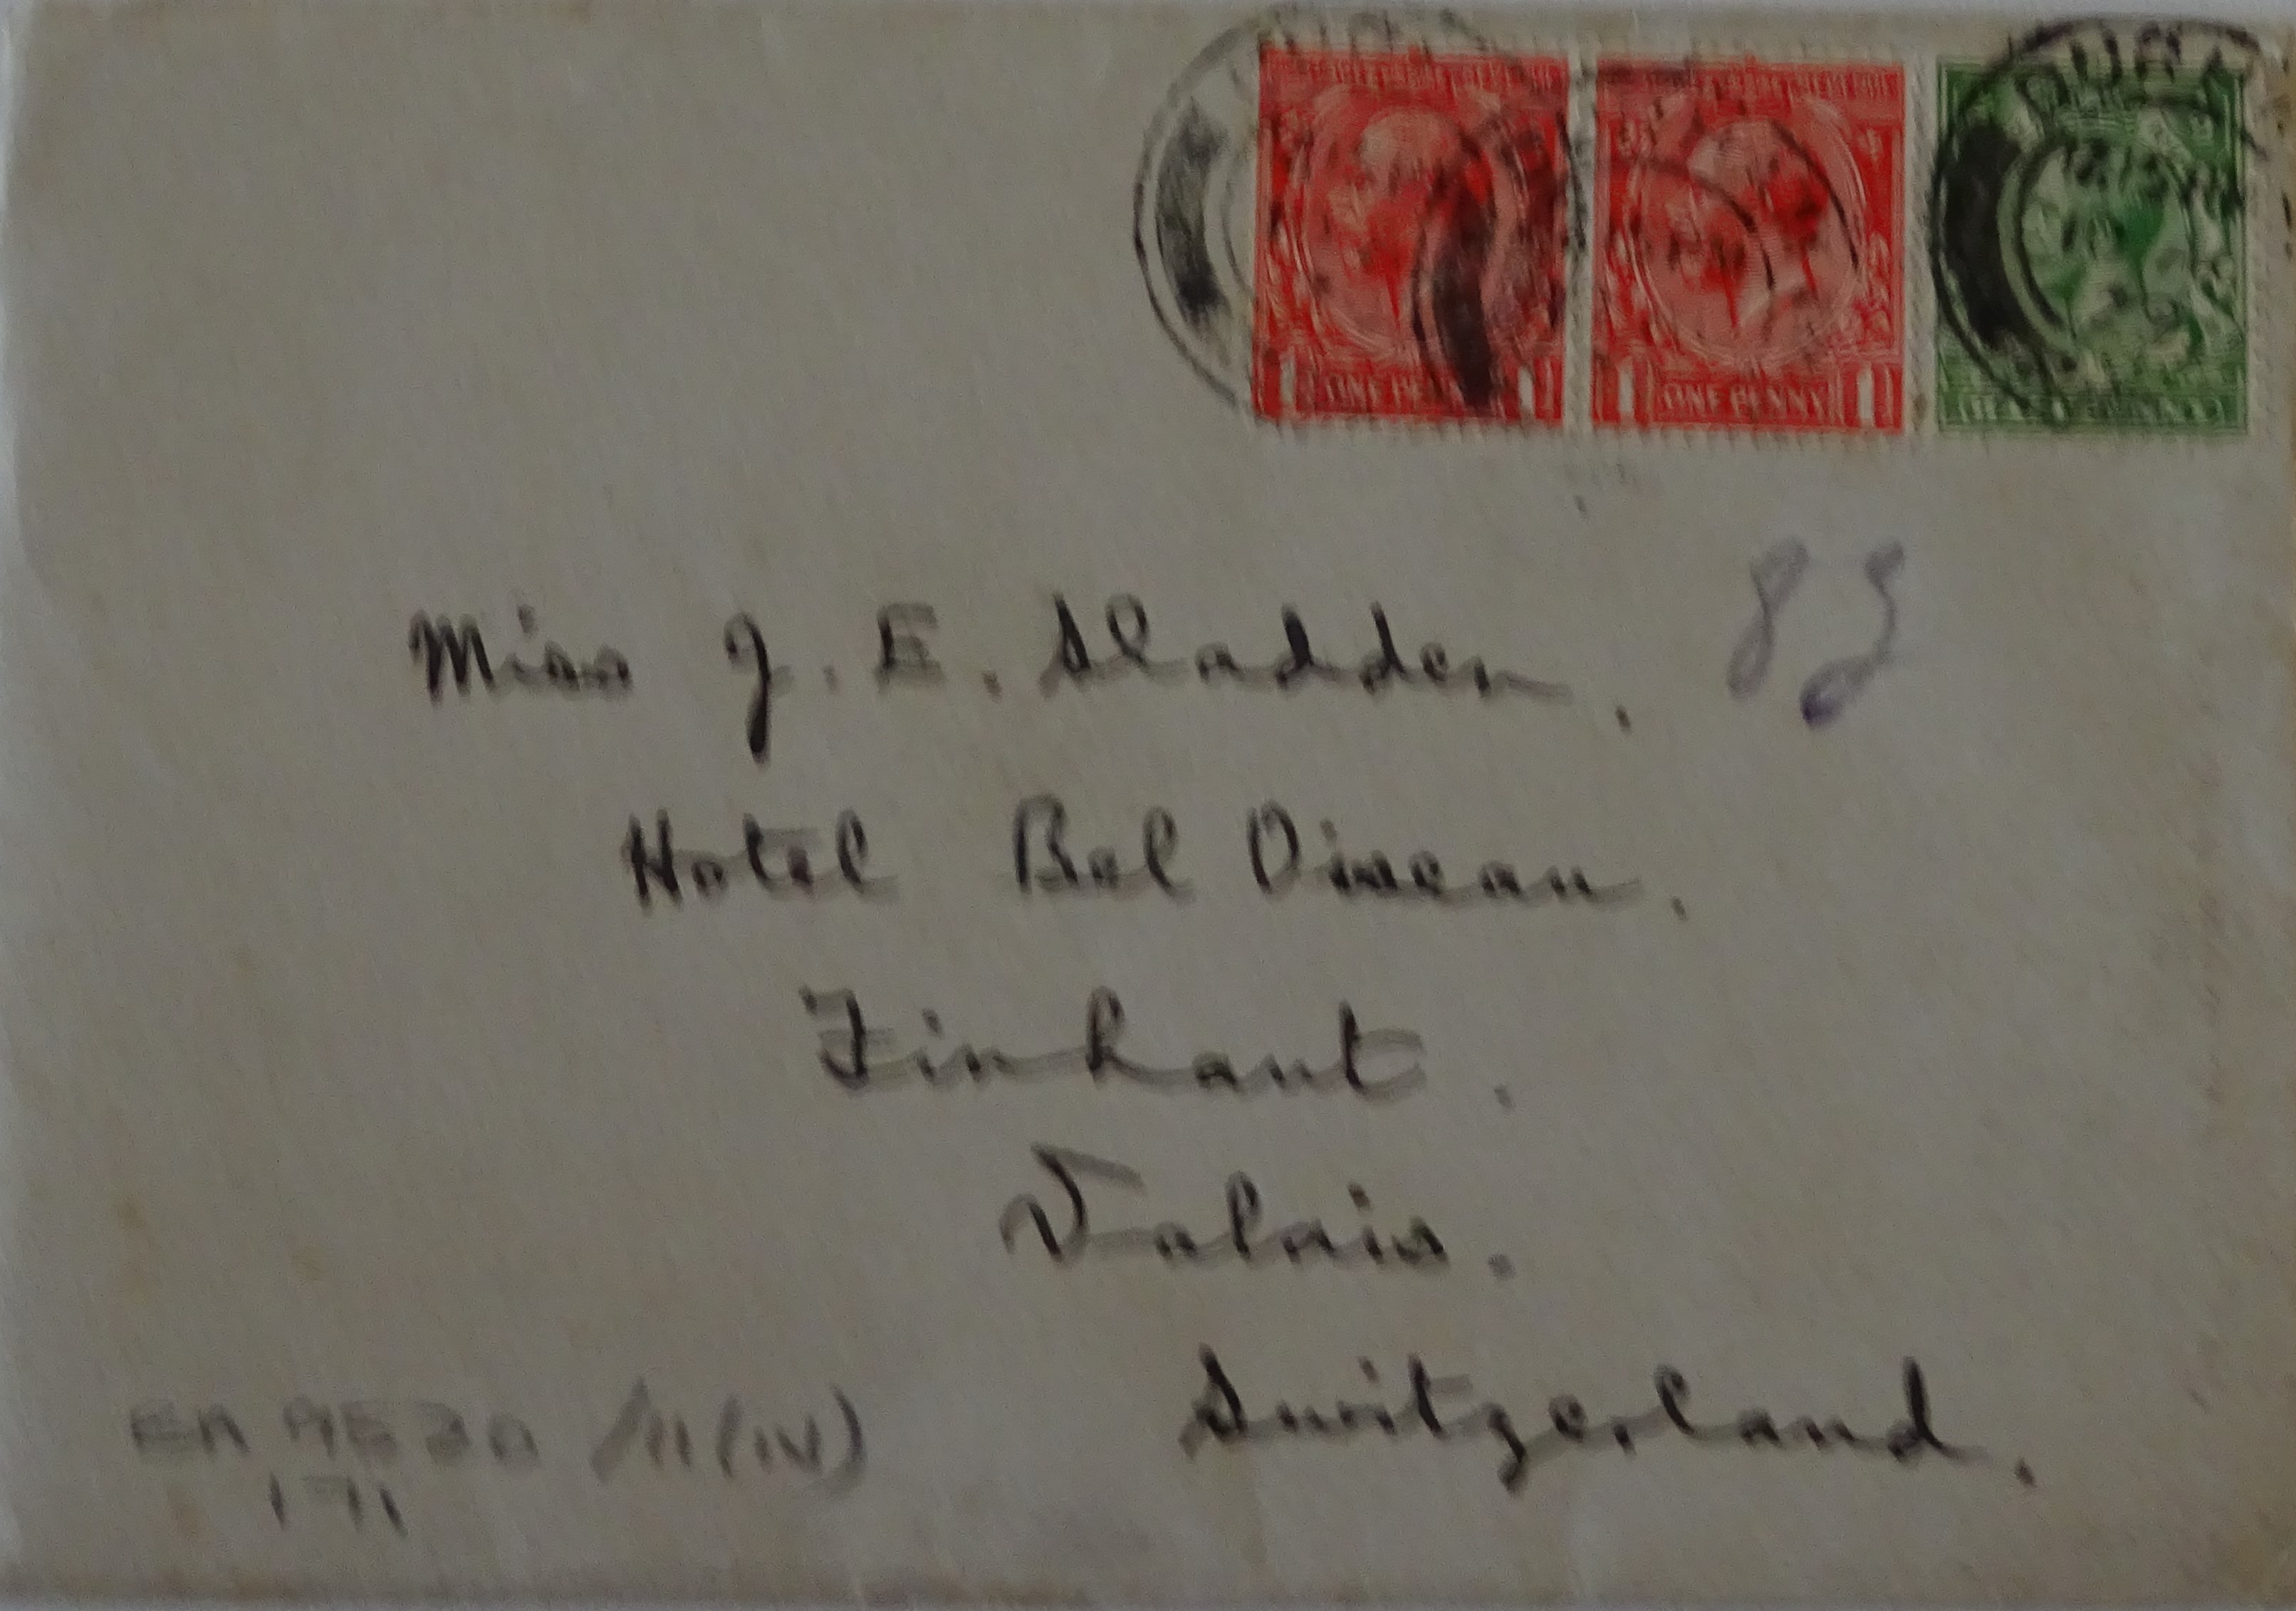 ONE PENNY
ONE PENNY
83
Miss J. E. Sladden.
Hotel Bel Oiseau.
Finhaut.
Valais.
Switzerland.
/11(IV)
171